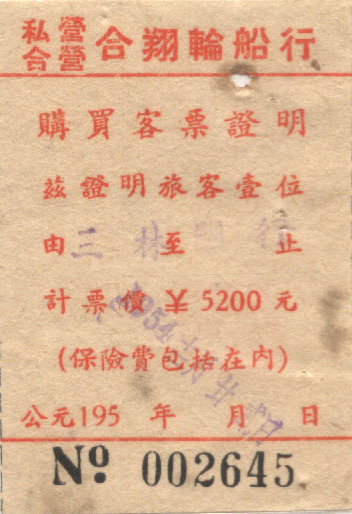 私營合營 合翔輪船行
購買客票證明
茲證明旅客壹位
由三林至閔行止
計票價¥5200元
(保險費包括在內)
公元195 年 月 日
1954
№ 002645